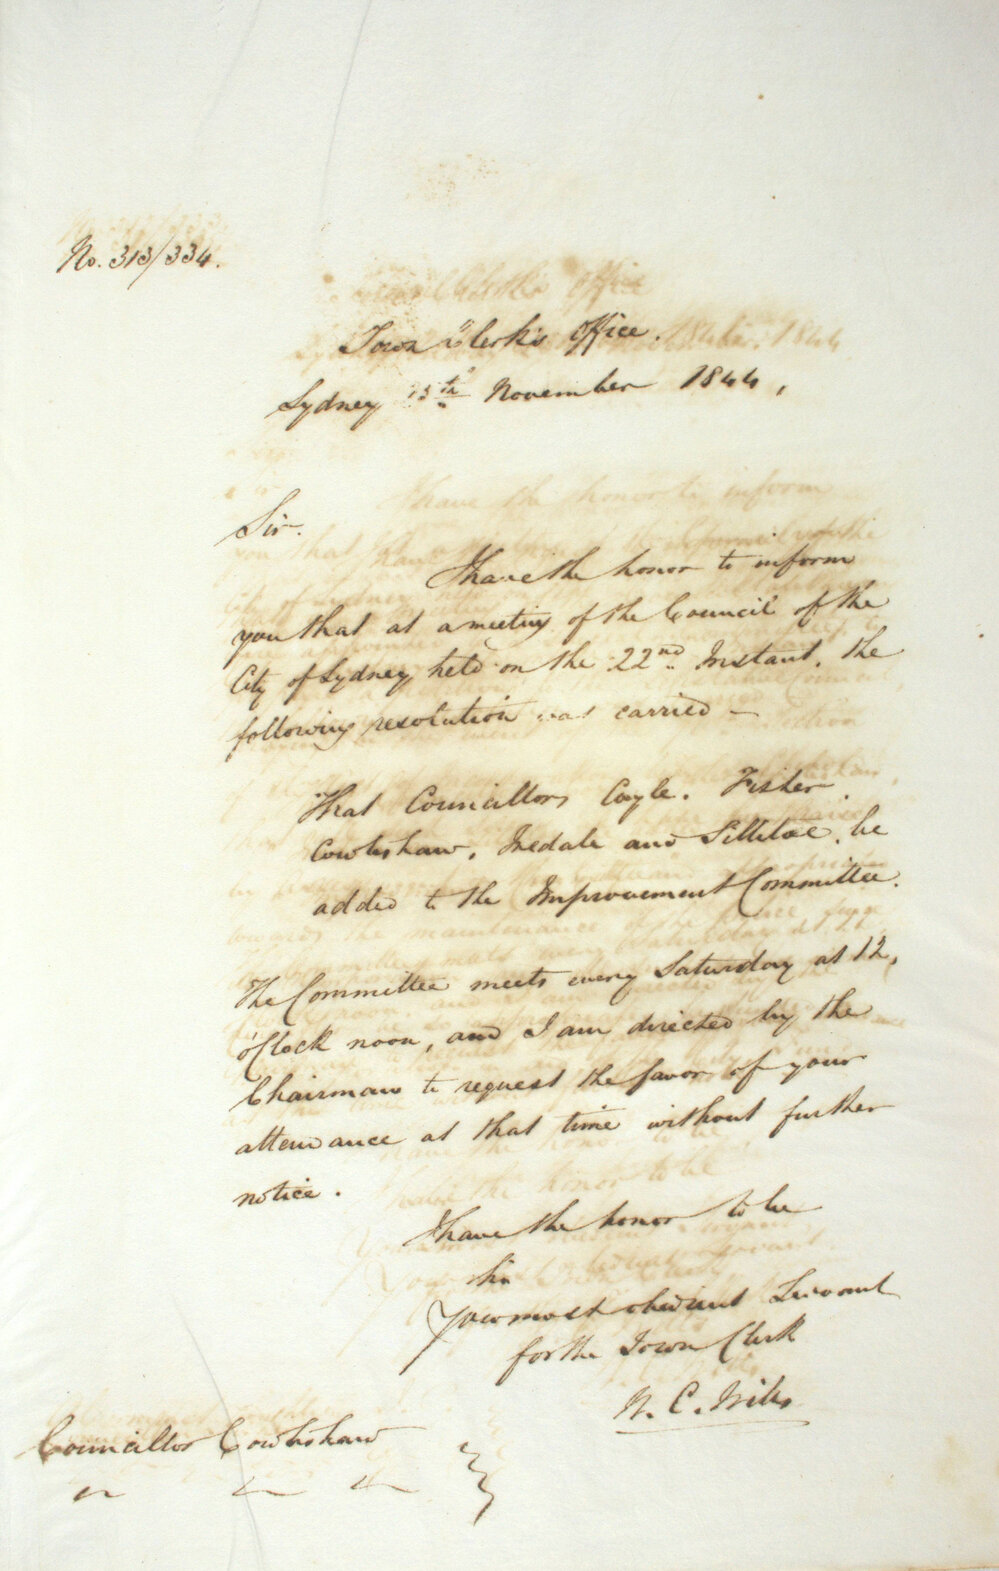 No. 313/334.
Town Clerk's Office.
Sydney th November 1844.
Sir.
I have the honor to inform
you that at a meeting of the Council of the
City of Sydney held on the 22nd. Instant, the
following resolution was carried –
That Councillors Coyle. Fisher.
Cowlishaw, Iredale and Sillitoe, be
added to the Improvement Committee.
The Committee meets every Saturday at 12,
o'Clock noon, and I am directed by the
Chairman to request the favor of your
attendance at that time without further
notice.
I have the honor to be
Sir
Your most obedient Servant
for the Town Clerk
C.
Councillor Cowlishaw